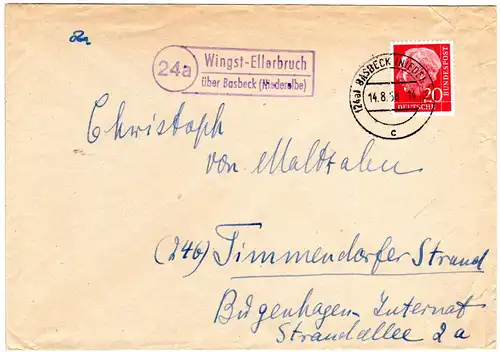 24a
Wingst-Ellerbruch
über Basbeck (Niederelbe)
(24a) BASBECK (NIEDERELBE)
14.8.58
c
20
DEUTSCHE
BUNDESPOST
Christoph
von Maltzahn
(24b) Timmendorfer Strand
Bugenhagen-Internat
Strandallee 2a